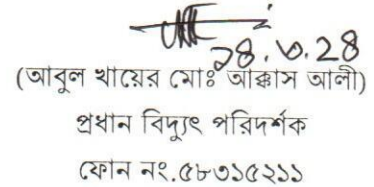 ১৪.৩.২৪
(আবুল খায়ের মোঃ আক্কাস আলী)
প্রধান বিদ্যুৎ পরিদর্শক
ফোন নং.৫৮৩১৫২১১